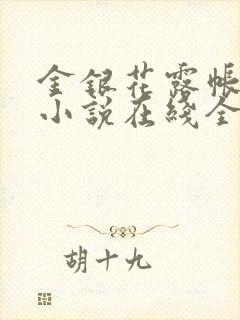 金銀花露帳
小説在綫全
胡十九